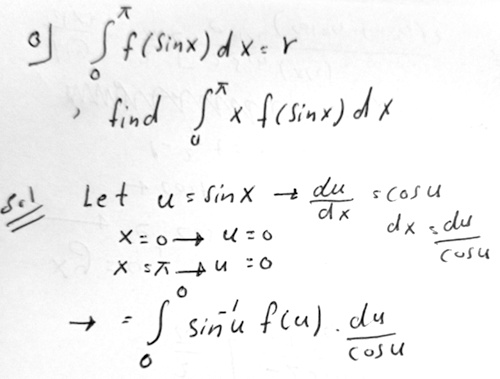 Q] ∫₀^π f(sinx) dx = r
, find ∫₀^π x f(sinx) dx
Sol Let u = sinx → du/dx = cosu
x = 0 → u = 0 dx = du/cosu
x = π → u = 0
→ = ∫₀^0 sin⁻¹u f(u) . du/cosu